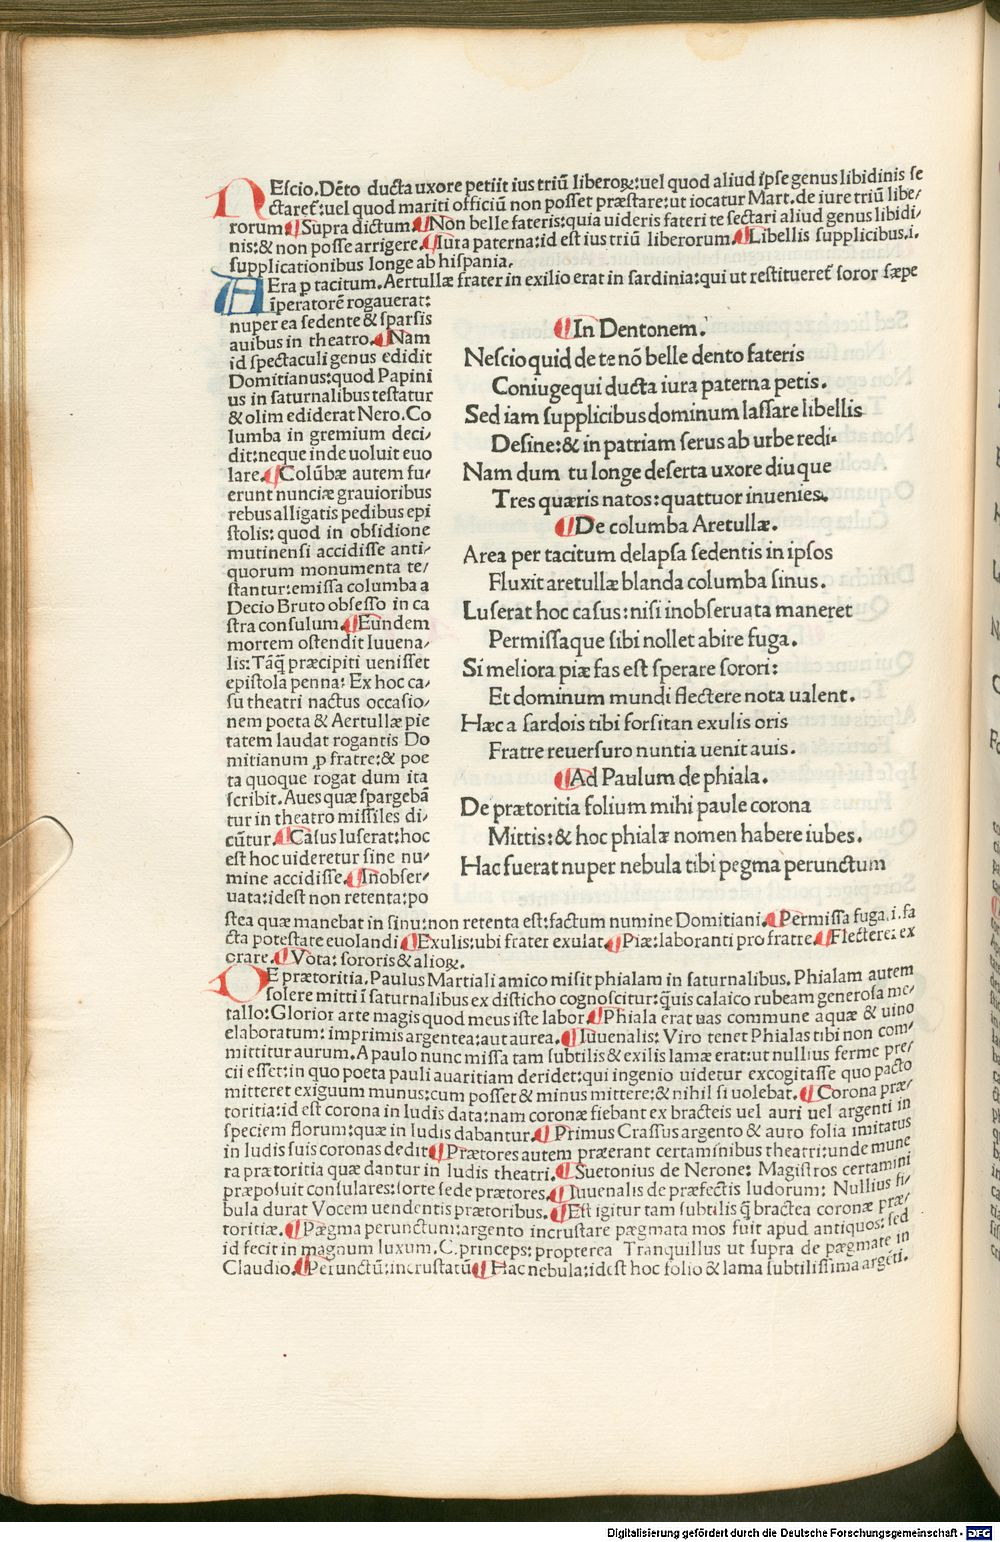 NEſcio. Dēto ducta uxore petiit ius triū liberoꝝ: uel quod aliud ipſe genus libidinis ſe
ctaret̄: uel quod mariti officiū non poſſet præſtare: ut iocatur Mart. de iure triū libe/
rorum ¶ Supra dictum. ¶ Non belle fateris: quia uideris fateri te ſectari aliud genus libidi/
nis: & non poſſe arrigere. ¶ Iura paterna: id eſt ius triū liberorum. ¶ Libellis ſupplicibus .i.
ſupplicationibus longe ab hiſpania.
AEra p tacitum. Aertullæ frater in exilio erat in ſardinia: qui ut reſtitueret̄ ſoror ſæpe
īperatorē rogauerat:
nuper ea ſedente & ſparſis
auibus in theatro. ¶ Nam
id ſpectaculi genus edidit
Domitianus: quod Papini
us in ſaturnalibus teſtatur
& olim ediderat Nero. Co
lumba in gremium deci/
dit: neque inde uoluit euo
lare. ¶ Colūbæ autem fu/
erunt nunciæ grauioribus
rebus alligatis pedibus epi
ſtolis: quod in obſidione
mutinenſi accidiſſe anti/
quorum monumenta te/
ſtantur: emiſſa columba a
Decio Bruto obſeſſo in ca
ſtra conſulum. ¶ Eundem
mortem oſtendit Iuuena/
lis: Tāq̄ præcipiti ueniſſet
epiſtola penna: Ex hoc ca/
ſu theatri nactus occaſio/
nem poeta & Aertullæ pie
tatem laudat rogantis Do
mitianum ꝓ fratre: & poe
ta quoque rogat dum ita
ſcribit. Aues quæ ſpargebā
tur in theatro miſſiles di/
cūtur. ¶ Caſus luſerat: hoc
eſt hoc uideretur ſine nu/
mine accidiſſe. ¶ Inobſer/
uata: ideſt non retenta: po
¶ In Dentonem.
Neſcio quid de te nō belle dento fateris
Coniuge qui ducta iura paterna petis.
Sed iam ſupplicibus dominum laſſare libellis
Deſine: & in patriam ſerus ab urbe redi.
Nam dum tu longe deſerta uxore diuque
Tres quæris natos: quattuor inuenies.
¶ De columba Aretullæ.
Area per tacitum delapſa ſedentis in ipſos
Fluxit aretullæ blanda columba ſinus.
Luſerat hoc caſus: niſi inobſeruata maneret
Permiſſaque ſibi nollet abire fuga.
Si meliora piæ fas eſt ſperare ſorori:
Et dominum mundi flectere nota ualent.
Hæc a ſardois tibi forſitan exulis oris
Fratre reuerſuro nuntia uenit auis.
¶ Ad Paulum de phiala.
De prætoritia folium mihi paule corona
Mittis: & hoc phialæ nomen habere iubes.
Hac fuerat nuper nebula tibi pegma perunctum
ſtea quæ manebat in ſinu: non retenta eſt: factum numine Domitiani. ¶ Permiſſa fuga .i. fa
cta poteſtate euolandi ¶ Exulis: ubi frater exulat. ¶ Piæ: laboranti pro fratre. ¶ Flectere: ex
orare. ¶ Vota: ſororis & alioꝝ.
DE prætoritia. Paulus Martiali amico miſit phialam in ſaturnalibus. Phialam autem
ſolere mitti ī ſaturnalibus ex diſticho cognoſcitur: q̄uis calaico rubeam generoſa me/
tallo: Glorior arte magis quod meus iſte labor. ¶ Phiala erat uas commune aquæ & uino
elaboratum: imprimis argentea: aut aurea. ¶ Iuuenalis: Viro tenet Phialas tibi non com/
mittitur aurum. A paulo nunc miſſa tam ſubtilis & exilis lamæ erat: ut nullius ferme pre/
cii eſſet: in quo poeta pauli auaritiam deridet: qui ingenio uidetur excogitaſſe quo pacto
mitteret exiguum munus: cum poſſet & minus mittere: & nihil ſi uolebat. ¶ Corona præ/
toritia: id eſt corona in ludis data: nam coronæ fiebant ex bracteis uel auri uel argenti in
ſpeciem florum: quæ in ludis dabantur. ¶ Primus Craſſus argento & auro folia imitatus
in ludis ſuis coronas dedit. ¶ Prætores autem præerant certaminibus theatri: unde mune
ra prætoritia quæ dantur in ludis theatri. ¶ Suetonius de Nerone: Magiſtros certamini
præpoſuit conſulares: ſorte ſede prætores. ¶ Iuuenalis de præfectis ludorum: Nullius fi/
bula durat Vocem uendentis prætoribus. ¶ Eſt igitur tam ſubtilis q̄ bractea coronæ præ/
toritiæ. ¶ Pægma perunctum: argento incruſtare pægmata mos fuit apud antiquos: ſed
id fecit in magnum luxum. C. princeps: propterea Tranquillus ut ſupra de pægmate in
Claudio. ¶ Perunctū: incruſtatū ¶ Hac nebula: ideſt hoc folio & lama ſubtiliſſima argēti.
Digitalisierung gefördert durch die Deutsche Forschungsgemeinschaft - DFG